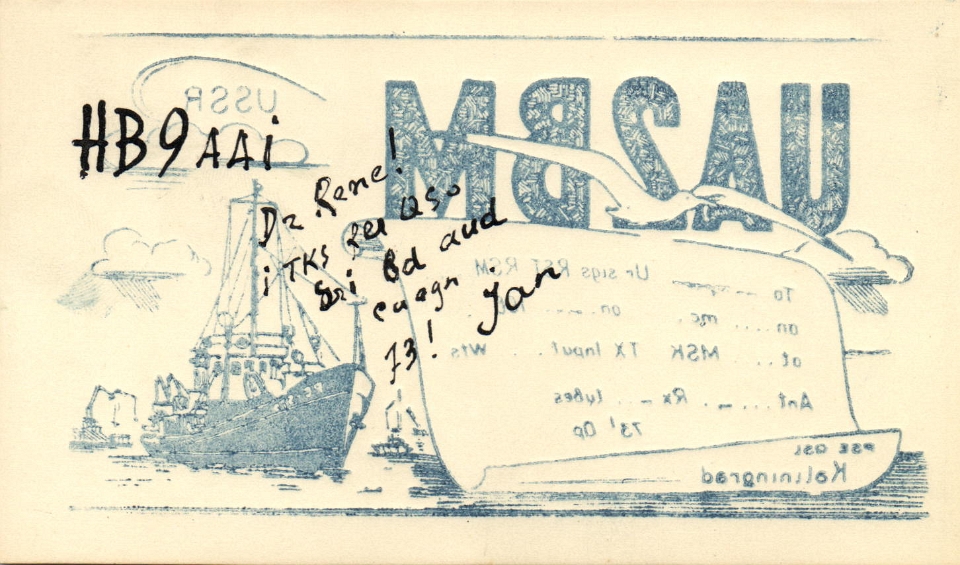 USSR
UA2BM
HB9AAI
Dr Rene!
TKS fer QSO
Sri Bd and
cuagn
73! Jan
To Ur sigs RST RSM
on mc. on
at MSK TX Input Wts
Ant Rx tubes
73! Op
PSE QSL
Kaliningrad